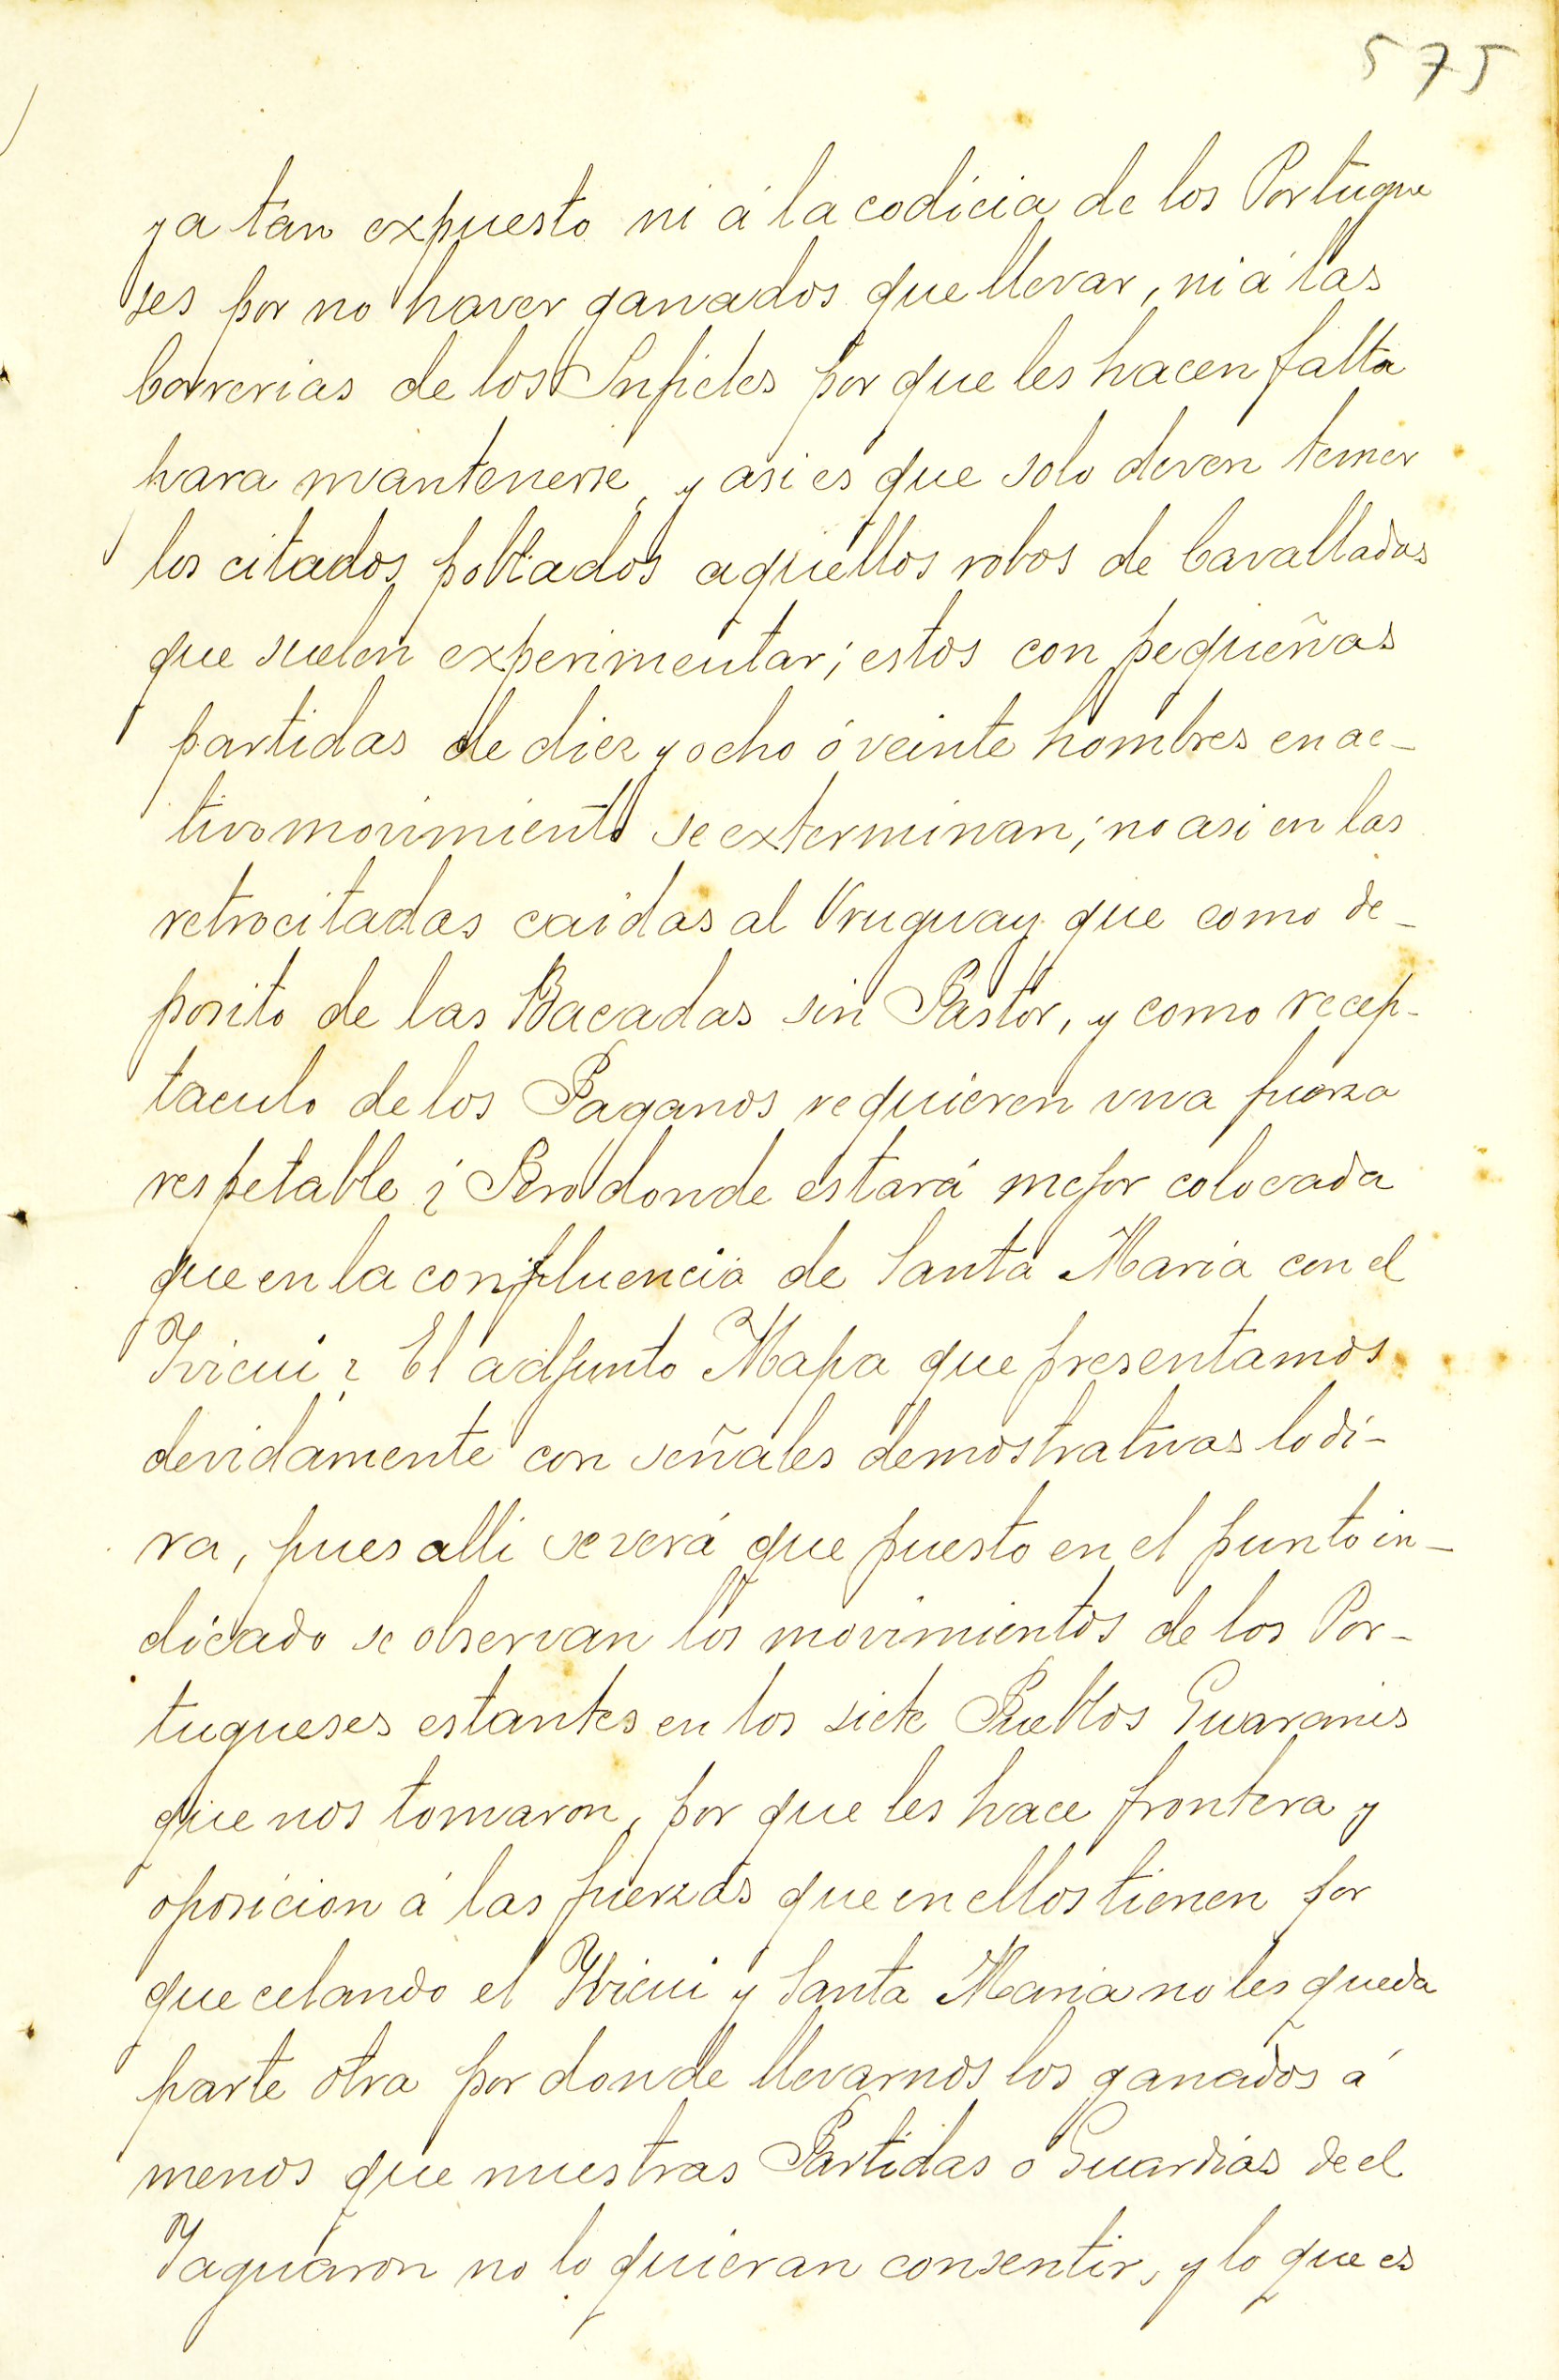 575
ya tan expuesto ni á la codicia de los Portugue
ses por no haver ganados que llevar, ni á las
Correrias de los Infieles por que les hacen falta
para mantenerse, y asi es que solo deven temer
los citados poblados aquellos robos de Cavalladas
que suelen experimentar; estos con pequeñas
partidas de diez y ocho ó veinte hombres en ac-
tivo movimiento se exterminan; no asi en las
retrocitadas caidas al Uruguay que como de-
posito de las Bacadas sin Pastor, y como recep-
taculo de los Paganos requieren una fuerza
respetable ¿ Pero donde estará mejor colocada
que en la confluencia de Santa Maria con el
Yvicui? El adjunto Mapa que presentamos
devidamente con señales demostrativas lo di-
ra, pues alli se verá que puesto en el punto in-
dicado se observan los movimientos de los Por-
tugueses estantes en los siete Pueblos Guaranis
que nos tomaron, por que les hace frontera y
oposicion á las fuerzas que en ellos tienen por
que celando el Yvicui y Santa Maria no les queda
parte otra por donde llevarnos los ganados á
menos que nuestras Partidas o Guardias de el
Yaguaron no lo quieran consentir, y lo que es